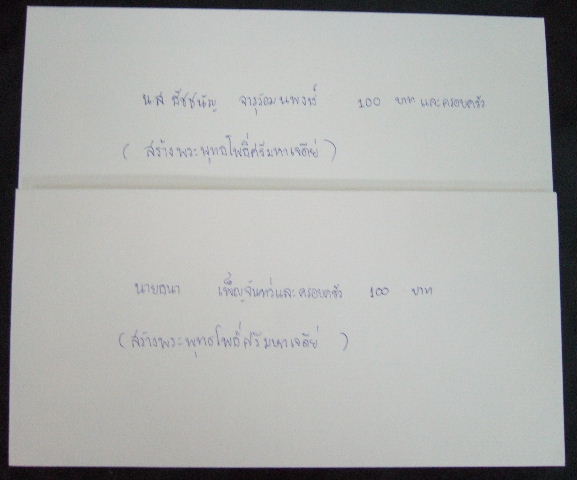 น.ส ธัชชนัญ จารุวัฒนพงษ์ 100 บาท และครอบครัว
( สร้างพระพุทธโพธิ์ศรีมหาเจดีย์ )
นายธนา เพ็ญจันทร์และครอบครัว 100 บาท
(สร้างพระพุทธโพธิ์ศรีมหาเจดีย์ )